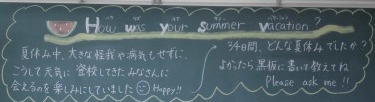 How was your summer vacation?
夏休み中、大きな怪我や病気もせずに、
こうして元気に登校してきたみなさんに
会えるのを楽しみにしていました Happy!!
34日間、どんな夏休みでしたか?
よかったら黒板に書いて教えてね
Please ask me!!